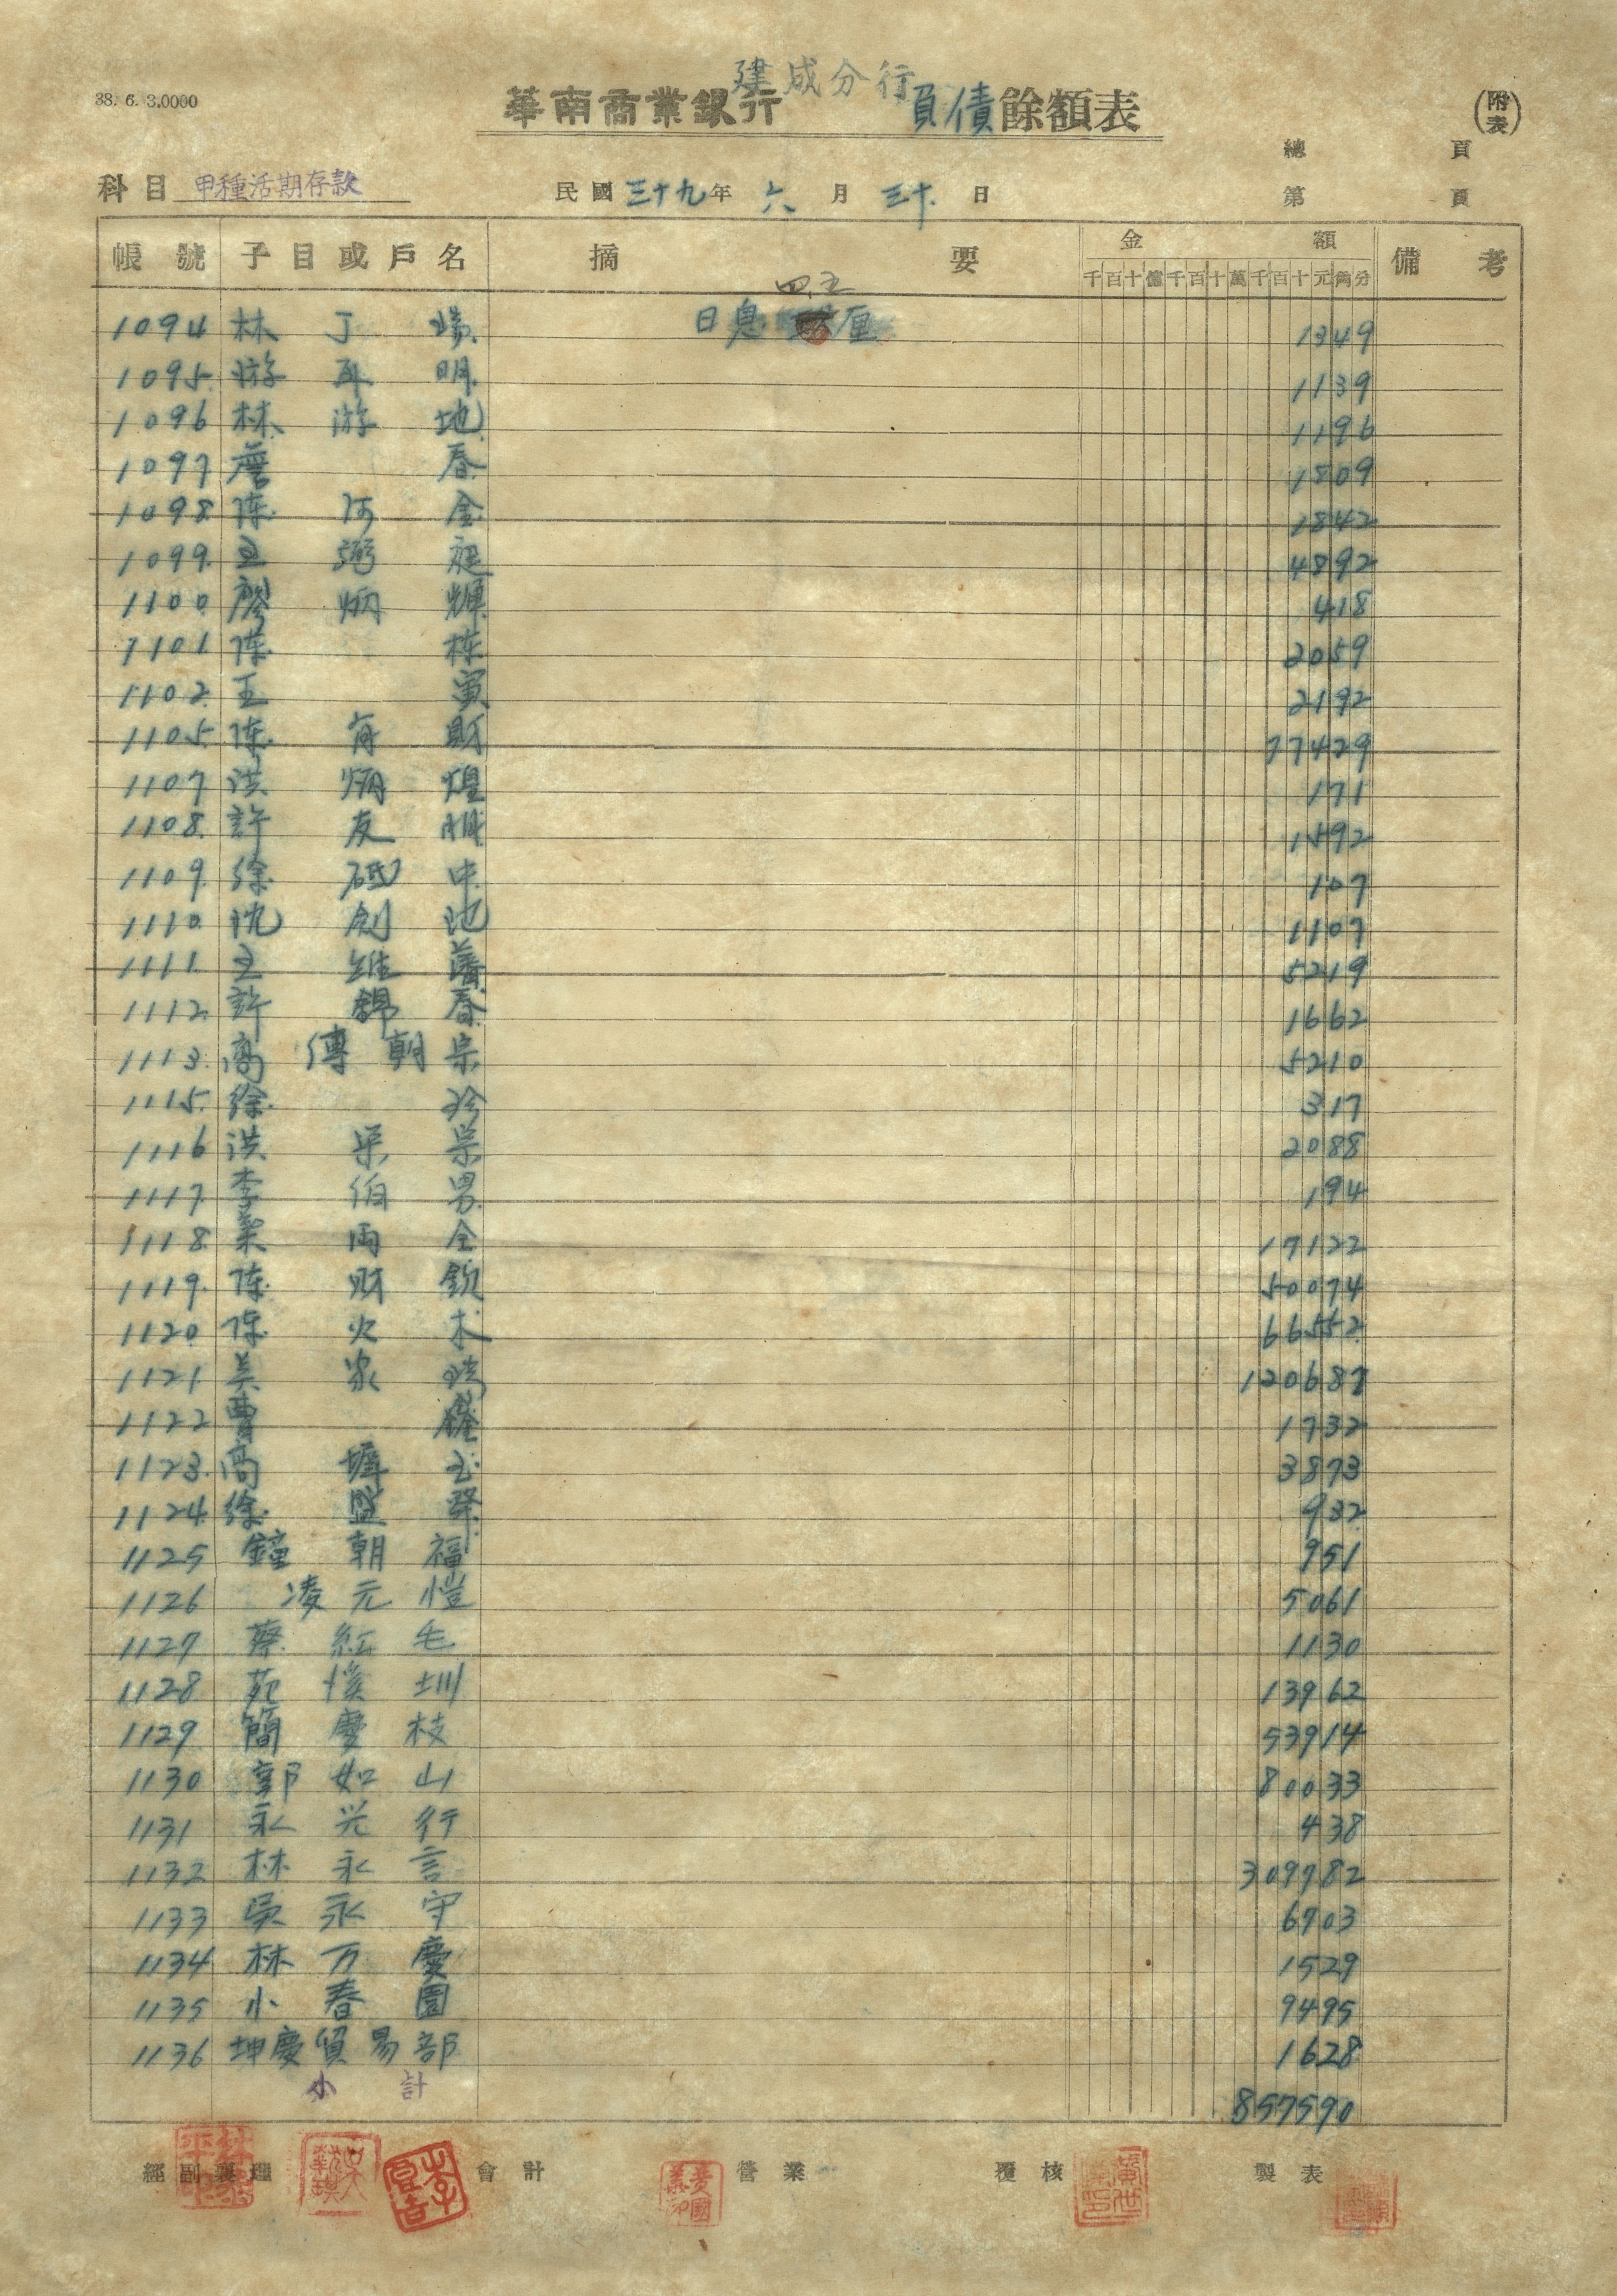 建成分行
38. 6. 3.0000
華南商業銀行 負債餘額表
(附表)
總 頁
科目 甲種活期存款 民國三十九年 六月 三十日 第 頁
帳號 子目或戶名 摘要 金額 備考
千百十億千百十萬千百十元角分
四五
1094 林丁 日息 厘 1349
1095 游 明 1139
1096 林游地 1196
1097 詹春 1809
1098 陳阿金 1842
1099 王 4892
1100 廖炳輝 418
1101 陳棟 2059
1102 王寅 2192
1105 陳有財 77429
1107 洪炳煌 171
1108 許友 1592
1109 徐 中 107
1110 沈劍池 1107
1111 王維藩 5219
1112 許錦春 1662
1113 高傳朝宗 5210
1115 徐珍 317
1116 洪 2088
1117 李伯男 194
1118 葉両全 17122
1119 陳財欽 50074
1120 陳火木 66552
1121 吳家 120687
1122 曹 1732
1123 高墀玉 3873
1124 徐盛 932
1125 鐘朝福 951
1126 凌元愷 5061
1127 蔡紅毛 1130
1128 苑 圳 13962
1129 簡慶枝 53914
1130 郭如山 80033
1131 永兴行 438
1132 林永言 309782
1133 吳永守 6703
1134 林万慶 1529
1135 小春園 9495
1136 坤慶貿易部 1628
小計 857590
經副襄理 會計 營業 覆核 製表